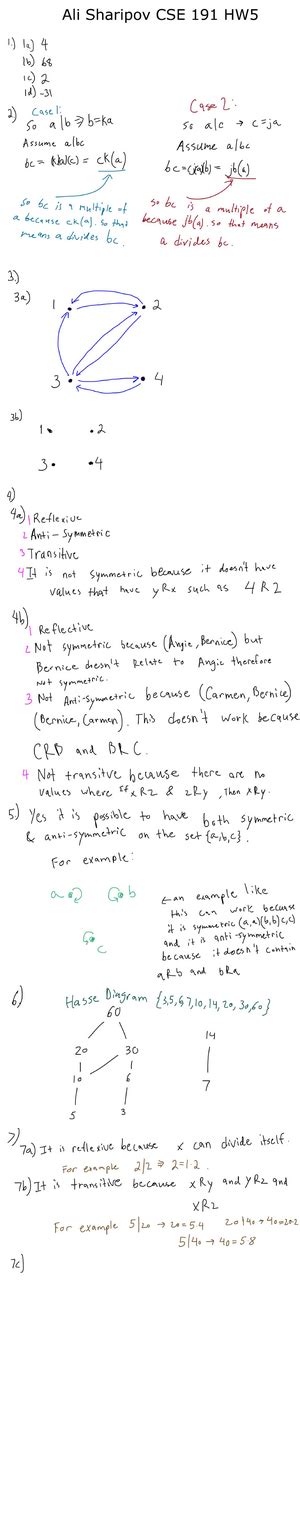 Ali Sharipov CSE 191 HW5
1.) 1a) 4
1b) 68
1c) 2
1d) -31
2) Case 1:
So a|b → b=ka
Assume a|bc
bc = (ka)(c) = ck(a)
so bc is a multiple of
a because ck(a). so that
means a divides bc.
Case 2:
So a|c → c=ja
Assume a|bc
bc=(ja)(b)= jb(a)
so bc is a multiple of a
because jb(a). so that means
a divides bc.
3.)
3a) 1 2
3 4
3b)
1 2
3 4
4)
4a) 1 Reflexive
2 Anti-Symmetric
3 Transitive
4 It is not symmetric because it doesn't have
values that have yRx such as 4R2
4b)
1 Reflective
2 Not symmetric because (Angie, Bernice) but
Bernice doesn't relate to Angie therefore
not symmetric.
3 Not Anti-symmetric because (Carmen, Bernice)
(Bernice, Carmen). This doesn't work because
CRB and BRC.
4 Not transitve because there are no
values where if xRz & zRy, then xRy.
5) Yes it is possible to have both symmetric
& anti-symmetric on the set {a,b,c}.
For example:
a b
c
←an example like
this can work because
it is symmetric (a,a)(b,b)(c,c)
and it is anti-symmetric
because it doesn't contain
aRb and bRa
6) Hasse Diagram {3,5,6,7,10,14,20,30,60}
60
20 30 14
10 6 7
5 3
7)
7a) It is reflexive because x can divide itself.
For example 2/2 → 2=1·2.
7b) It is transitive because xRy and yRz and
xRz
For example 5|20 → 20=5·4 20|40 → 40=20·2
5|40 → 40=5·8
7c)